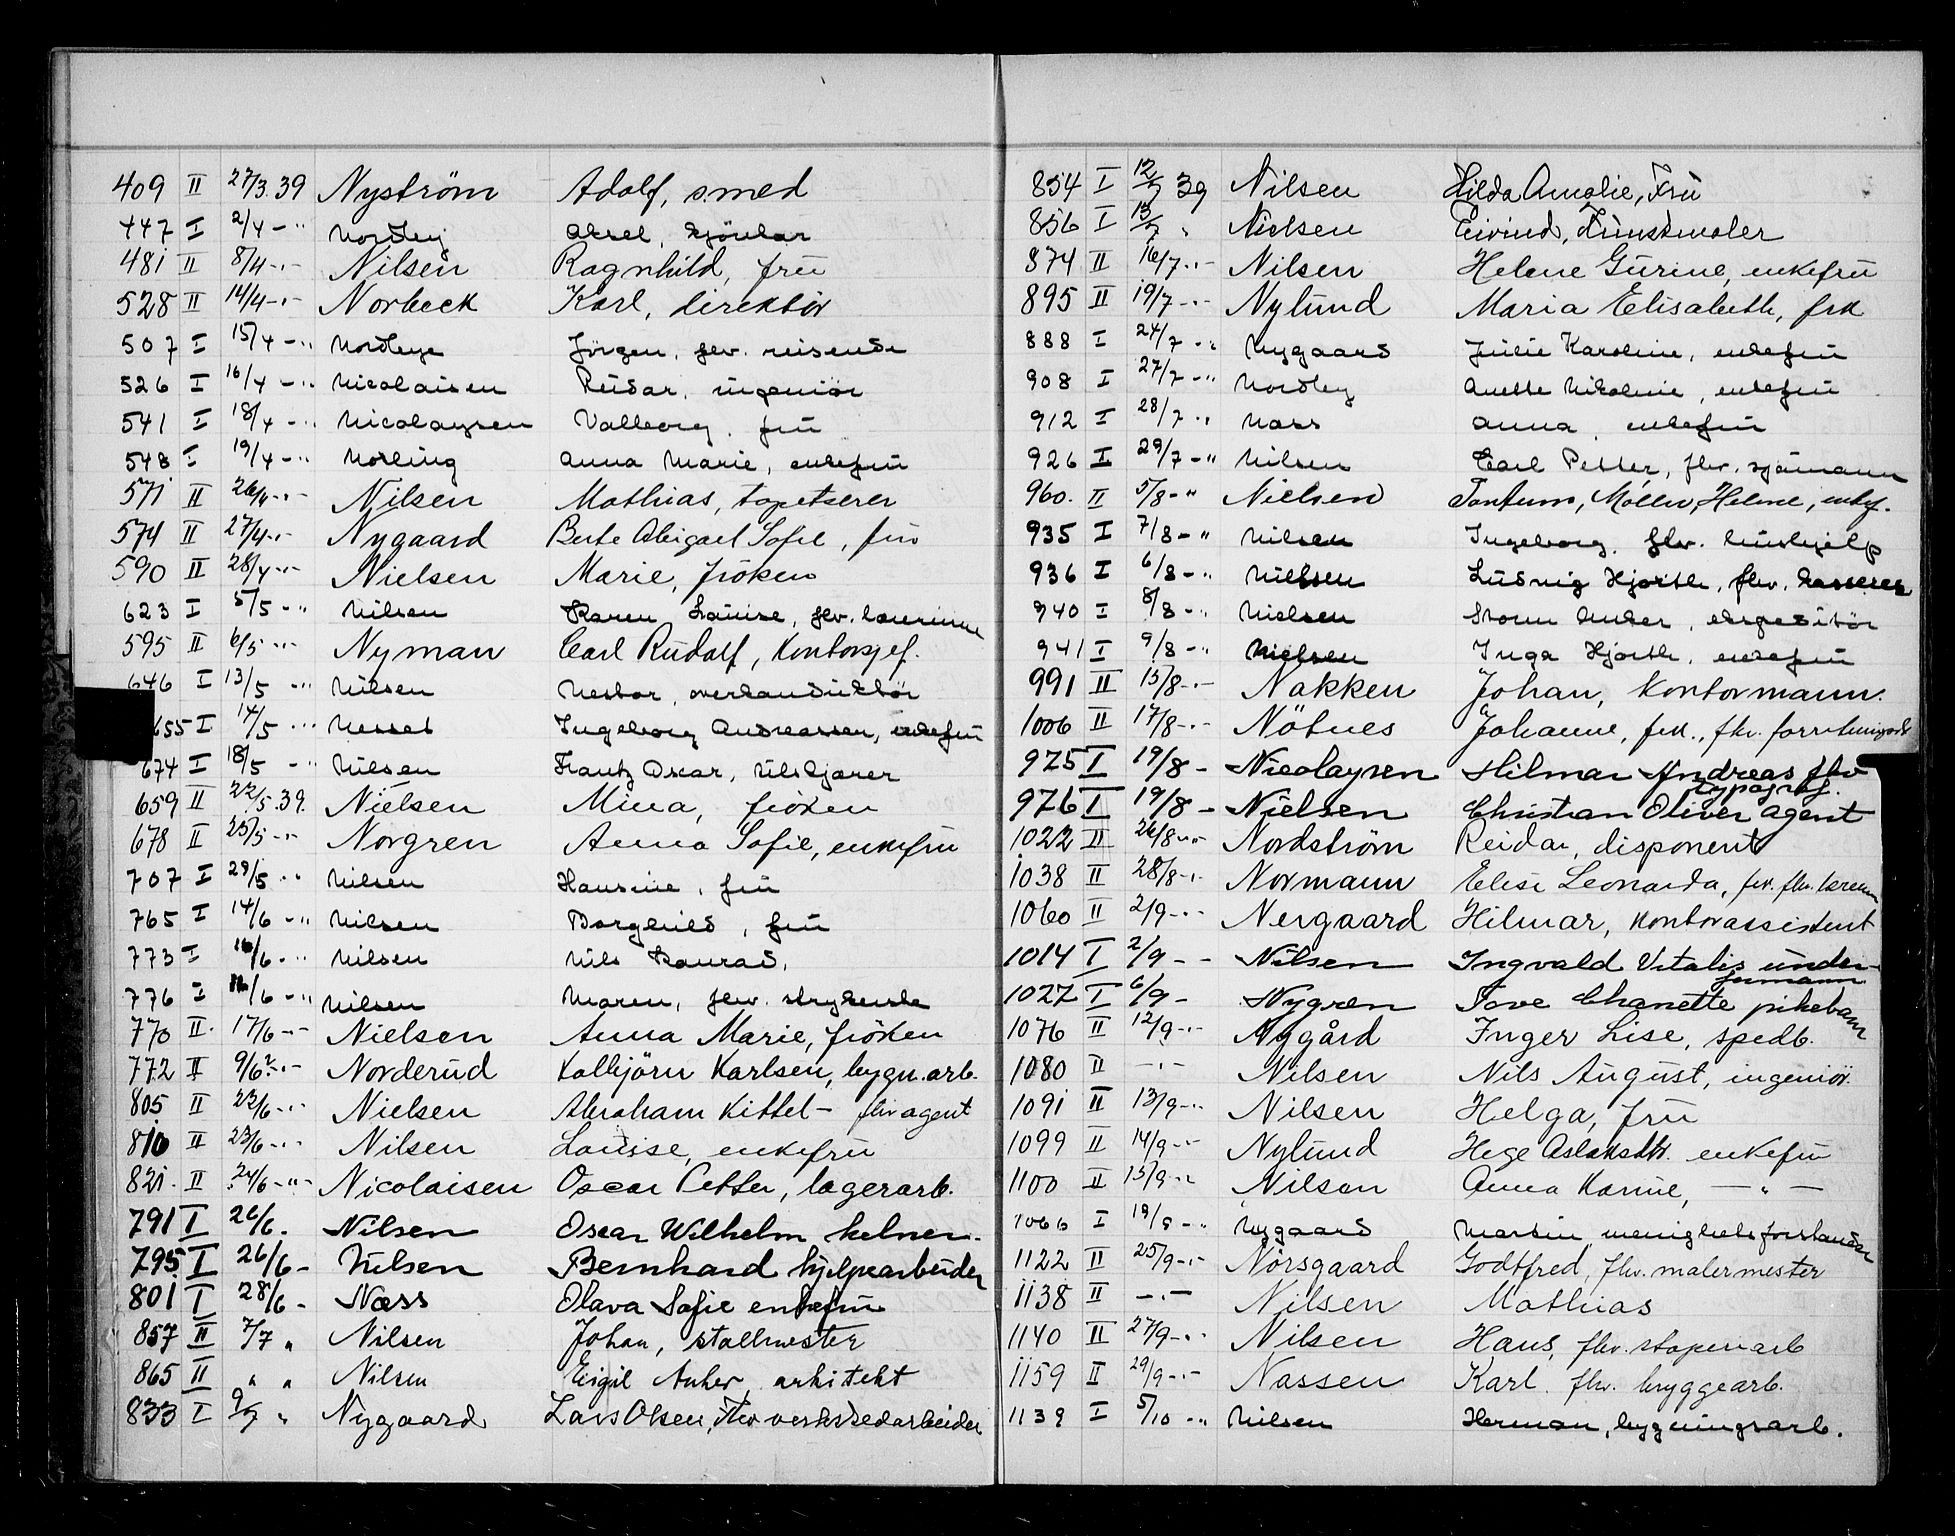 409 II 27/3.39 Nyström Adolf, smed
447 I 2/4 -" Nordley Aksel, kjönbar
481 II 8/4 -"- Nilsen Ragnhild, frü
528 II 14/4 -"- Norbeck Karl, direktör
507 I 15/4 -" Nordbye Jörgen, flv. reisende
526 I 16/4 -" Nicolaisen Reidar, ingeniör
541 I 18/4 -" Nicolaysen Valborg, frü
548 I 19/4 -" Norling Anna Marie, enkefrü
571 II 26/4 -"- Nilsen Mathias, tapetserer
574 II 27/4 -"- Nygaard Berte Abigael Sofie, frü
590 II 28/4 -"- Nielsen Marie, fröken
623 I 5/5 -" Nilsen Karen Louise, flv. lærerinne
595 II 6/5 -"- Nyman Carl Rudolf, Kontorsjef.
646 I 13/5 -" Nilsen Nestor, overkonduktör
655 I 14/5 -" Nesset Ingeborg Andreassen, enkefrü
674 I 18/5 -" Nilsen Frantz Oscar, tilskjærer
659 II 22/5.39. Nielsen Mina, fröken
678 II 25/5 -"- Norgren Anna Sofie, enkefrü
707 I 29/5 -" Nilsen Hansine, frü
765 I 14/6 -" Nilsen Borghild, frü
773 I 16/6 -" Nilsen Nils Konrad,
776 I 16/6 -" Nilsen Maren, flv. strykerske
770 II 17/6 -"- Nielsen Anna Marie, fröken
772 II 9/6? -"- Norderud Kolbjörn Karlsen, bygn.arb.
805 II 22/6 -"- Nielsen Abraham Kittel - flv agent
810 II 23/6 -"- Nilsen Louise, enkefrü
821. II 24/6 -"- Nicolaisen Oscar Petter, lagerarb.
791 I 26/6. Nilsen Oscar Wilhelm kelner.
795 I 26/6 - Nilsen Bernhard hjelpearbeider
801 I 28/6 - Næss Olava Sofie enkefrü
857 II 7/7 " Nilsen Johan, stallmester
865 II " " Nilsen Eigil Anker, arkitekt
833 I 9/7 " Nygaard Lars Olsen, Flv verkstedarbeider
854 I 12/7 39 Nilsen Hilda Amalie, Frü
856 I 13/7 " Nielsen Eivind, Kunstmaler
874 II 16/7 -"- Nilsen Helene Gurine, enkefrü
895 II 19/7 -"- Nylund Maria Elisabeth, frk
888 I 24/7 -" Nygaard Julie Karoline, enkefrü
908 I 27/7 -" Nordley Anette Nikoline, enkefrü
912 I 28/7 -" Næss Anna, enkefrü
926 I 29/7 -" Nilsen Carl Petter, flv. sjömann
960. II 5/8 -" Nielsen Tontum, Möller, Helene, enkef.
935 I 7/8 -" Nilsen Ingeborg, flv. hushjelp
936 I 6/8 -" Nielsen Ludvig Hjorth, flv. kasserer
940 I 8/8 -" Nielsen Storm Anker, ekspeditör
941 I 9/8 -" Nielsen Inga Hjorth, enkefrü
991 II 15/8 -"- Nakken Johan, kontormann.
1006 II 17/8 -"- Nötnes Johanne, frk., fhv. forretningsdr
975 I 19/8 - Nicolaysen Hilmar Andreas flv
typograf.
976 I 19/8 - Nielsen Christian Oliver agent
1022 II 26/8 -"- Nordström Reidar, disponent
1038 II 28/8 -"- Normann Elise Leonarda, frk. fhv. lærerinne
1060 II 2/9 -"- Nergaard Hilmar, kontorassistent
1014 I 2/9 - - Nilsen Ingvald Vitalis under-
formann
1027 I 6/9 - Nygren Tove Chanette pikebarn
1076 II 12/9 -"- Nygård Inger Lise, spedb.
1080 II -"- Nilsen Nils August, ingeniör.
1091 II 13/9 -"- Nilsen Helga, frü
1099 II 14/9 -"- Nylund Hege Aslaksdtr. enkefrü
1100 II 15/9 -"- Nilsen Anna Karine, -"-
1066 I 19/9 -" Nygaard Martin, menighetsforstander
1122 II 25/9 -"- Norsgaard Godtfred, fhv. malermester
1138 II -"- Nilsen Mathias
1140 II 27/9 -"- Nilsen Hans, fhv. støperiarb
1159 II 29/9 -"- Nassen Karl. fhv. bryggearb.
1139 I 5/10 -" Nilsen Herman, bygningsarb.